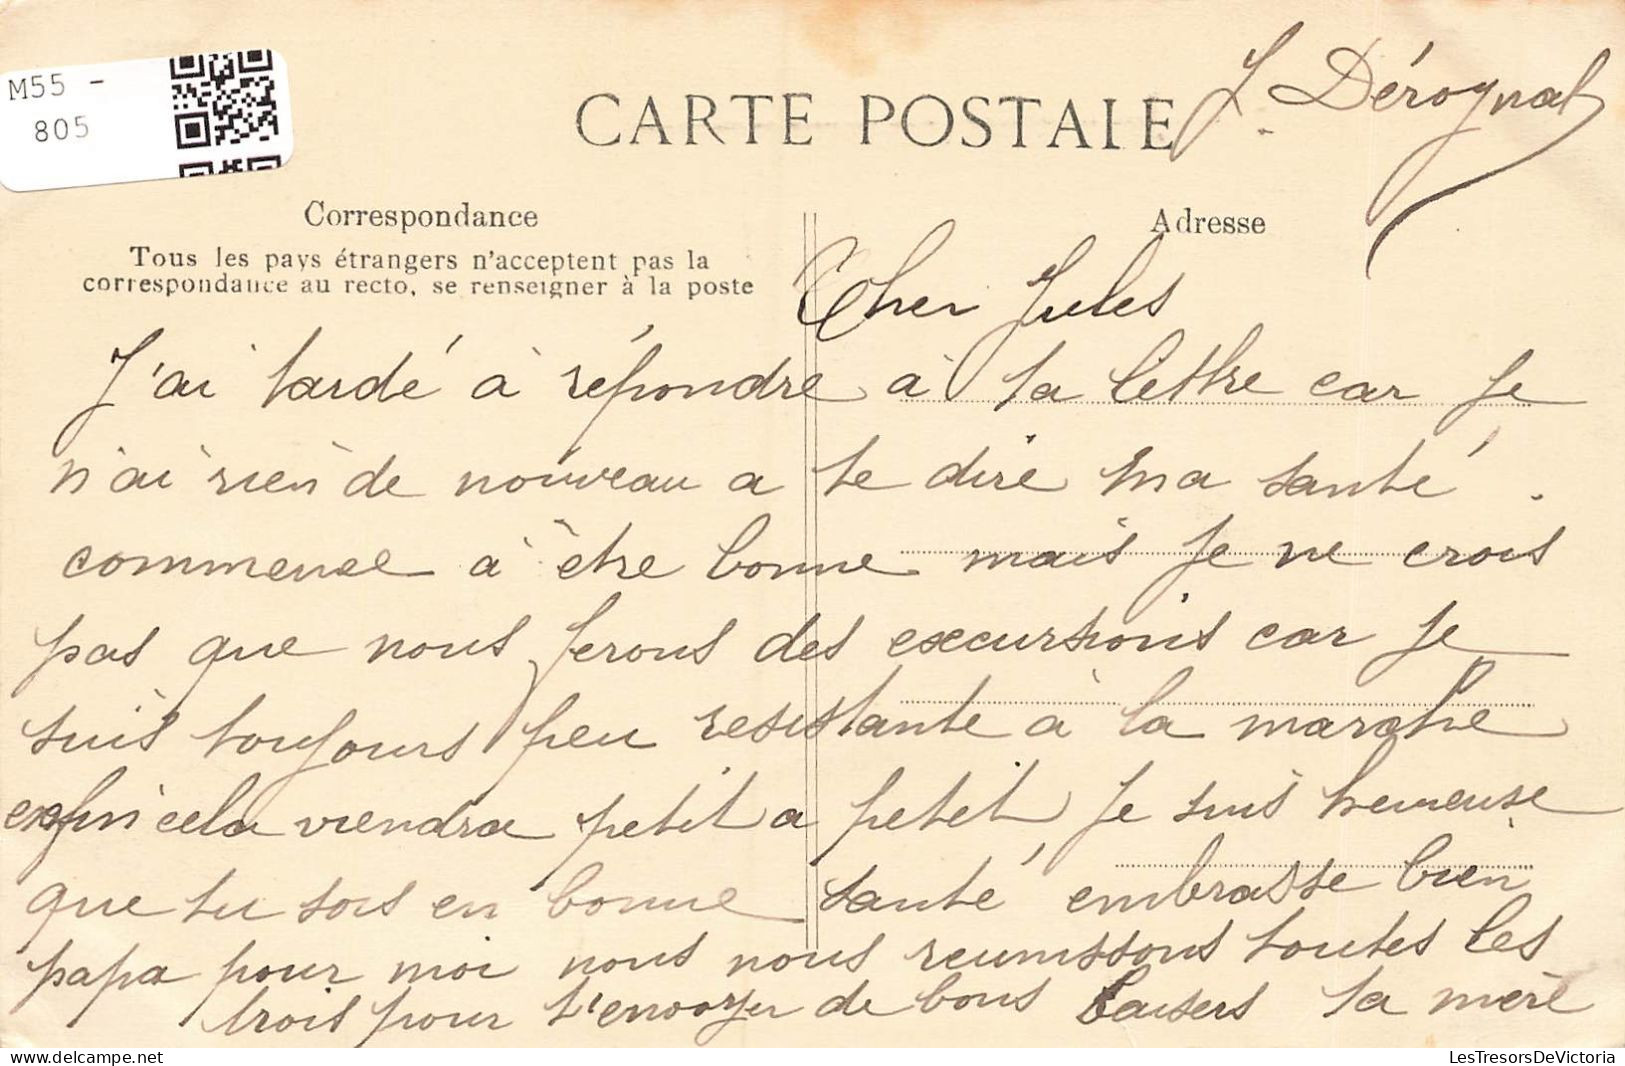 M55 -
805
CARTE POSTALE
Correspondance
Tous les pays étrangers n'acceptent pas la
correspondance au recto, se renseigner à la poste
Adresse
Cher Jules
J'ai tardé à répondre à ta lettre car je
n'ai rien de nouveau a te dire ma santé
commence à être bonne mais je ne crois
pas que nous ferons des excursions car je
suis toujours peu resistante à la marche
enfin cela viendra petit a petit je suis heureuse
que tu sois en bonne santé embrasse bien
papa pour moi nous nous reunissons toutes les
trois pour t'envoyer de bons baisers ta mère
LesTresorsDeVictoria